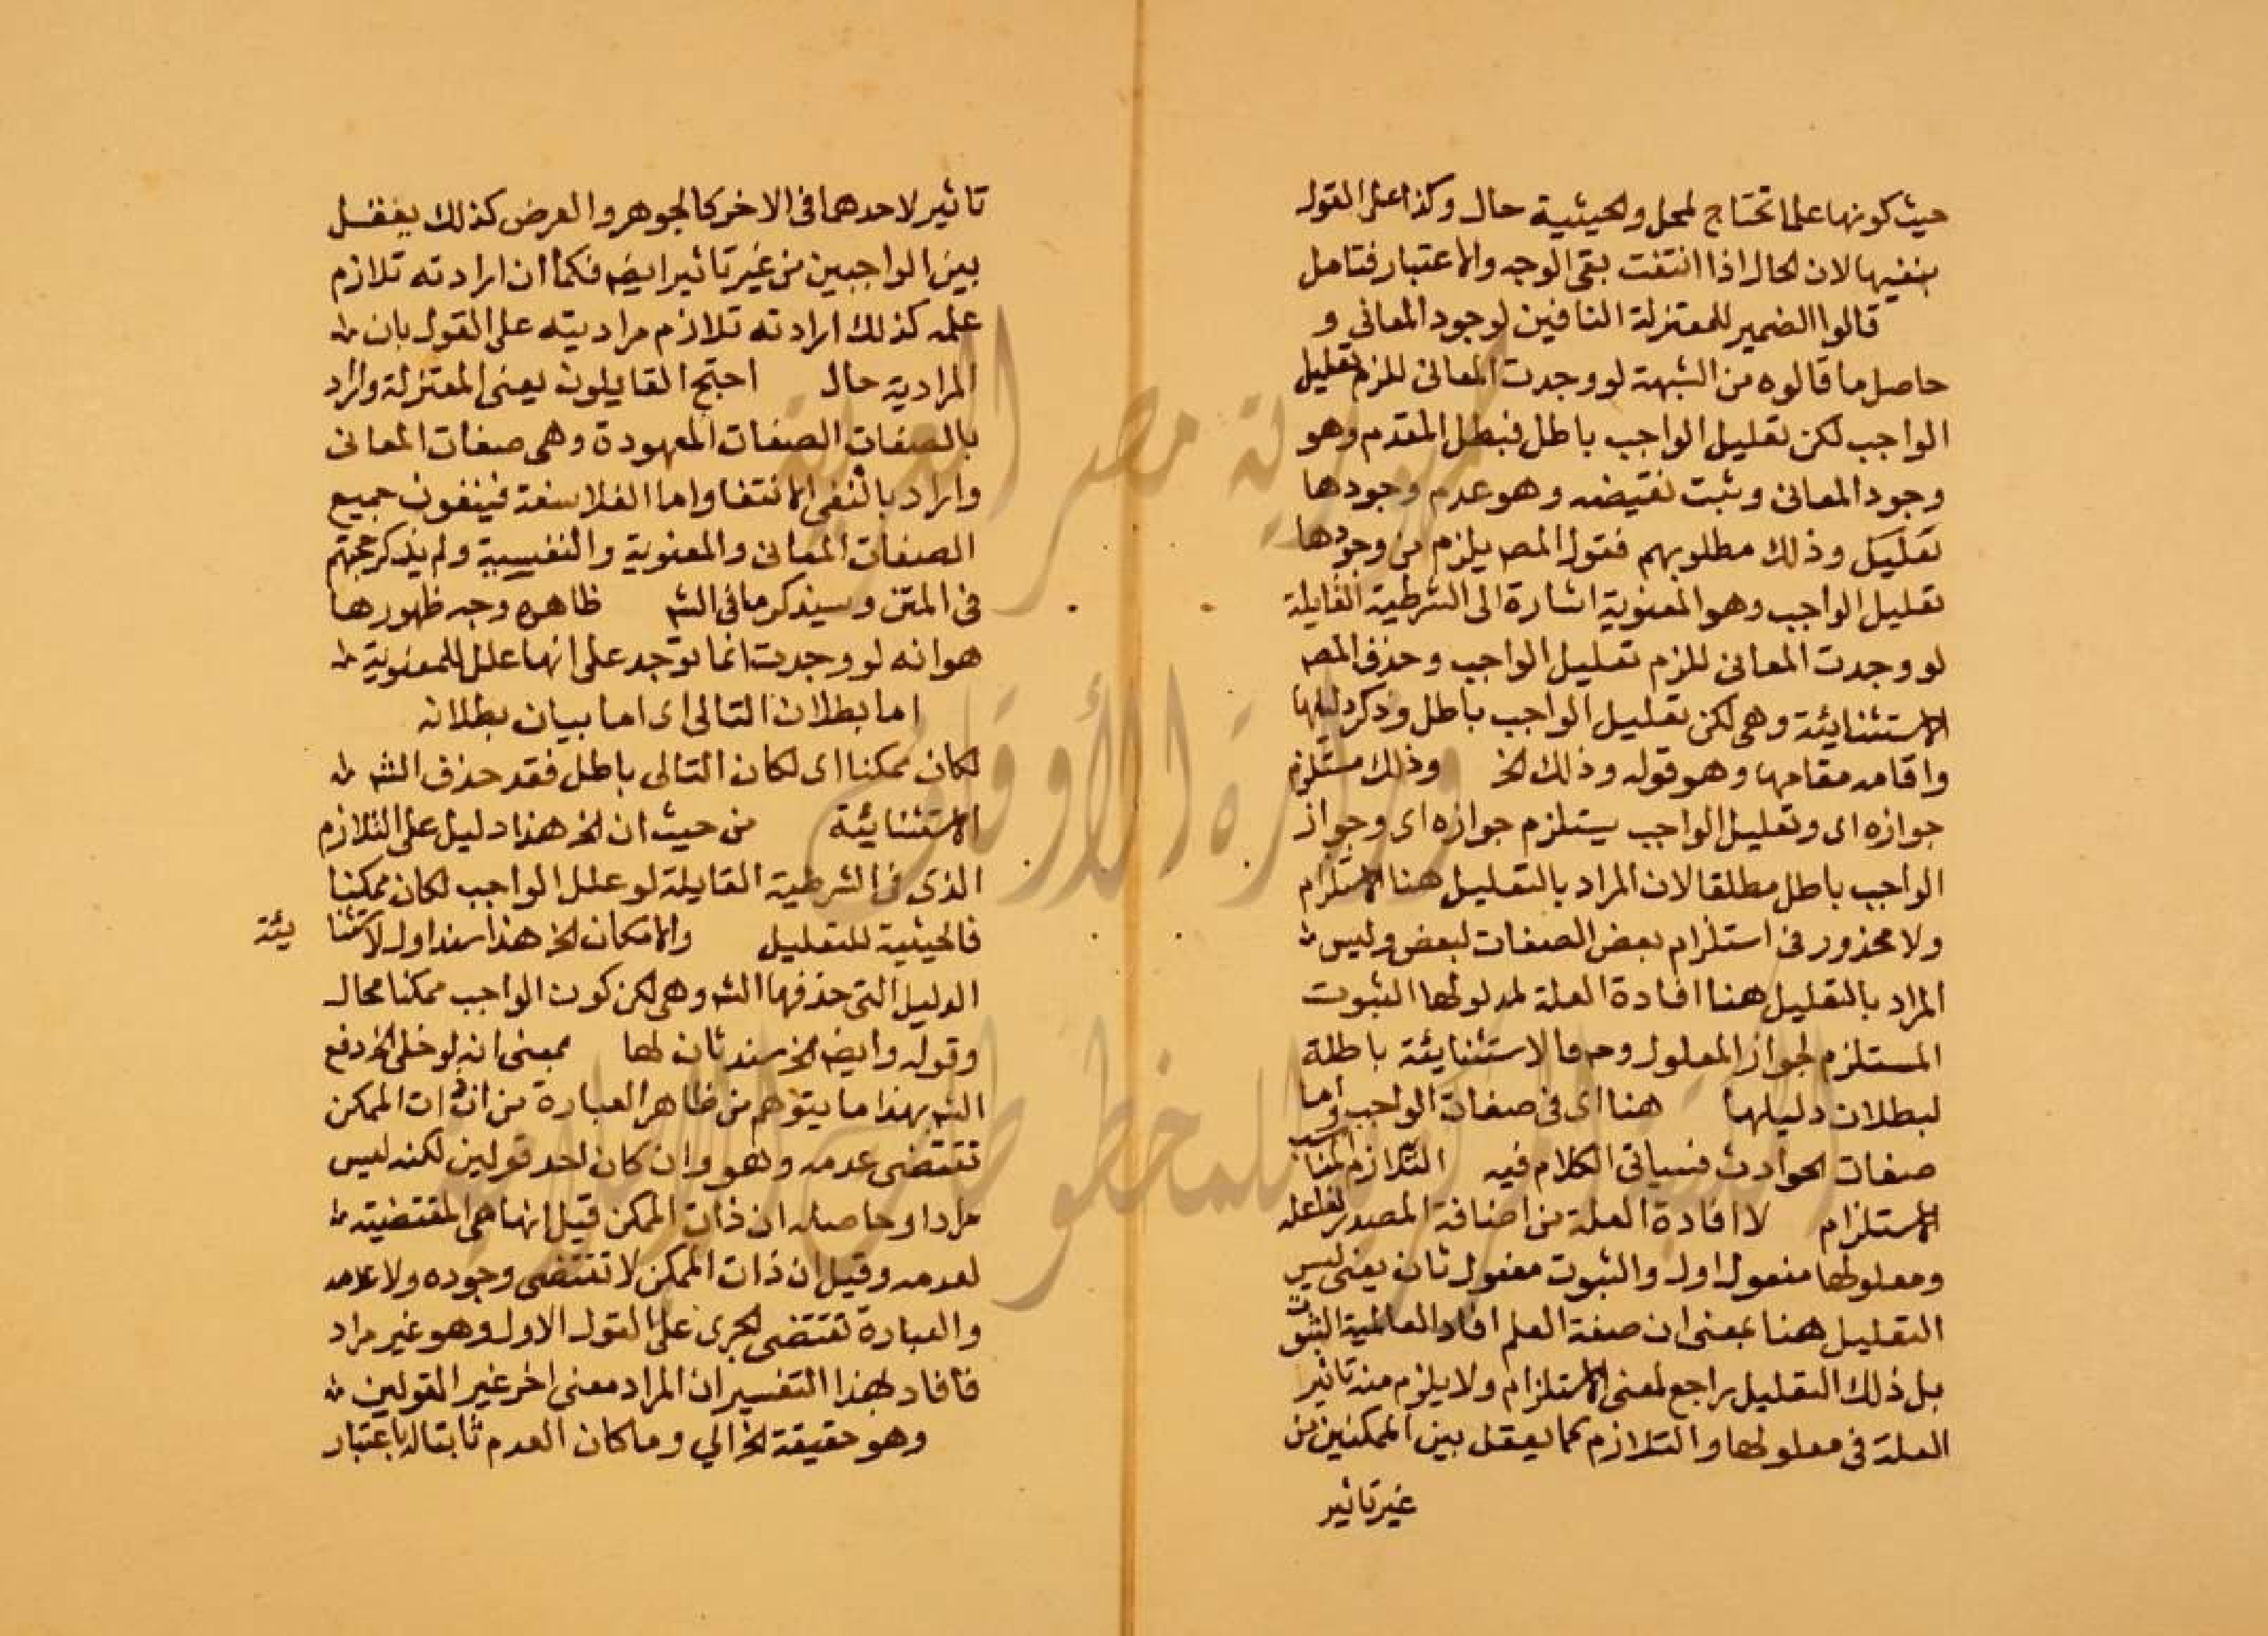 حيث كونها علما تحتاج لمحل والحيثية حال وكذا على القول
بنفيها لان الحال اذا انتفت بقى الوجه والاعتبار فتامل
قالوا الضمير للمعتزلة النافين لوجود المعانى و
حاصل ما قالوه من الشبهة لو وجدت المعانى للزم تعليل
الواجب لكن تعليل الواجب باطل فبطل المقدم وهو
وجود المعانى وثبت نقيضه وهو عدم وجودها
تعليل وذلك مطلوبهم فقول المص يلزم من وجودها
تعليل الواجب وهو المعنوية اشارة الى الشرطية القايلة
لو وجدت المعانى للزم تعليل الواجب وحذف المص
الاستثنائية وهى لكن تعليل الواجب باطل وذكر دليلها
واقامه مقامها وهو قوله وذلك الخ وذلك مستلزم
جوازه اى وتعليل الواجب يستلزم جوازه اى وجواز
الواجب باطل مطلقا لان المراد بالتعليل هنا الاستلزام
ولا محذور فى استلزام بعض الصفات لبعض وليس
المراد بالتعليل هنا افادة العلة لمدلولها الثبوت
المستلزم لجواز المعلول وح فالاستثنايئة باطلة
لبطلان دليلها هنا اى فى صفات الواجب واما
صفات الحوادث فسياتى الكلام فيه التلازم المناسب
الاستلزام لا افادة العلة من اضافة المصدر لفاعله
ومعلولها مفعول اول والثبوت مفعول ثان يعنى ليس
التعليل هنا بمعنى ان صفة العلم افاد العالمية الثبوت
بل ذلك التعليل راجع لمعنى الاستلزام ولا يلزم منه تاثير
العلة فى معلولها والتلازم كما يعقل بين الممكنين من
غير تاثير
تاثير لاحدهما فى الاخر كالجوهر والعرض كذلك يعقل
بين الواجبين من غير تاثير ايض فكما ان ارادته تلازم
علمه كذلك ارادته تلازم مراديته على القول بان
المرادية حال احتج القايلون يعنى المعتزلة واراد
بالصفات الصفات المعهودة وهى صفات المعانى
واراد بالنفى الانتفا واما الفلاسفة فينفون جميع
الصفات المعانى والمعنوية والنفسية ولم يذكر حجتهم
فى المتن وسيذكرها فى الش ظاهره وجه ظهورها
هو انه لو وجدت انما توجد على انها علل للمعنوية
اما بطلان التالى اى اما بيان بطلانه
لكان ممكنا اى لكان التالى باطل فقد حذف الش
الاستثنايئة من حيث ان الخ هذا دليل على التلازم
الذى فى الشرطية القايلة لو علل الواجب لكان ممكنا
فالحيثية للتعليل والامكان الخ هذا سند اول لاستثنا يئة
الدليل التى حذفها الش وهى لكن كون الواجب ممكنا محال
وقوله وايض الخ سند ثان لها بمعنى انه لو خلى الخ دفع
الش بهذا ما يتوهم من ظاهر العبارة من ان ذات الممكن
تقتضى عدمه وهو وان كان احد قولين لكنه ليس
مرادا وحاصله ان ذات الممكن قيل انها هى المقتضية
لعدمه وقيل ان ذات الممكن لا تقتضى وجوده ولا عدمه
والعبارة تقتضى الجرى على القول الاول وهو غير مراد
فافاد بهذا التفسير ان المراد معنى اخر غير القولين
وهو حقيقة الخ الي وما كان العدم ثابتا له باعتبار
جمهورية مصر العربية
وزارة الأوقاف
المكتبة المركزية للمخطوطات الإسلامية